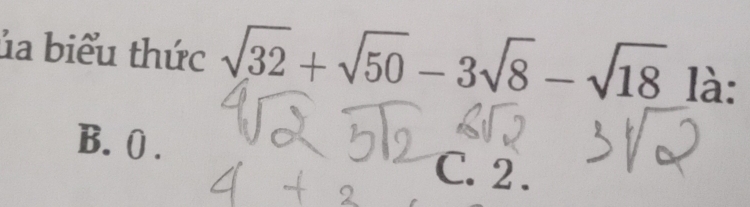 ủa biểu thức √32 + √50 − 3√8 − √18 là:
4√2 5√2 6√2 3√2
B. 0. C. 2.
4 +